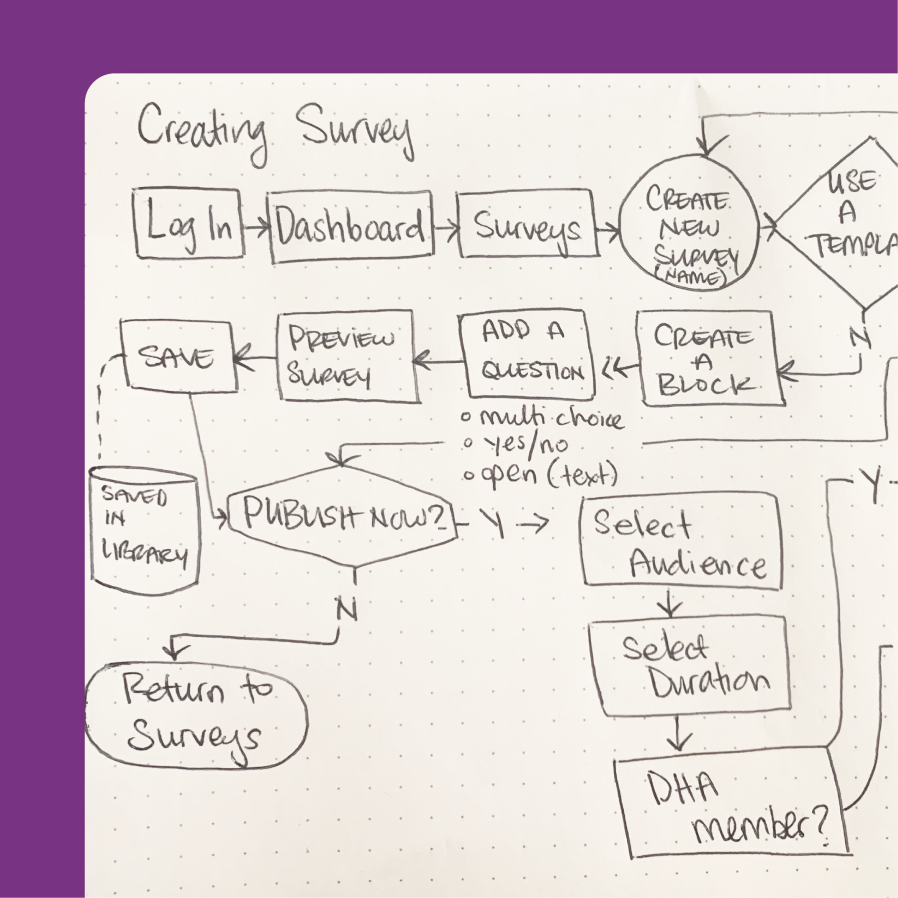 Creating Survey
Log In
Dashboard
Surveys
CREATE
NEW
SURVEY
(NAME)
USE
A
TEMPLA
N
SAVE
PREVIEW
SURVEY
ADD A
QUESTION
CREATE
A
BLOCK
multi choice
yes/no
open (text)
SAVED
IN
LIBRARY
PUBLISH NOW?
Y
Select
Audience
Y
N
Select
Duration
Return to
Surveys
DHA
member?